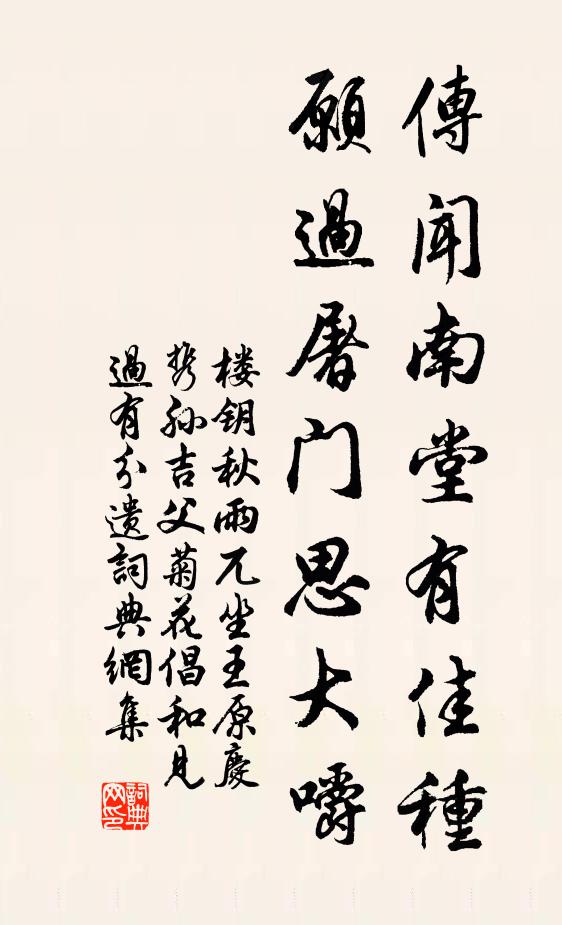 傳聞南堂有佳種
願過屠门思大嚼
楼钥秋雨兀坐王原慶
携孙吉父菊花倡和見
過有分遗詞典網集
詞典网印